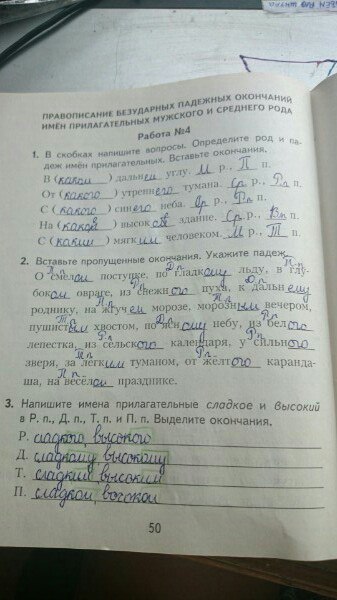 ПРАВОПИСАНИЕ БЕЗУДАРНЫХ ПАДЕЖНЫХ ОКОНЧАНИЙ
ИМЁН ПРИЛАГАТЕЛЬНЫХ МУЖСКОГО И СРЕДНЕГО РОДА
Работа №4
1. В скобках напишите вопросы. Определите род и па-
деж имён прилагательных. Вставьте окончания.
В (каком) дальнем углу. М р., П п.
От (какого) утреннего тумана. Ср. р., Р.п п.
С (какого) синего неба. Ср р., Р.п п.
На (какое) высокое здание. Ср. р., В.п п.
С (каким) мягким человеком. М р., Т п.
2. Вставьте пропущенные окончания. Укажите падеж.
П.п Д.п П.п
О смелом поступке, по гладкому льду, в глу-
Р.п Д.п
боком овраге, из снежного пуха, к дальнему
П.п Т.п
роднику, на жгучем морозе, морозным вечером,
Т.п Д.п Р.п
пушистым хвостом, по ясному небу, из белого
Р.п Р.п
лепестка, из сельского календаря, у сильного
Р.п
зверя, за лёгким туманом, от жёлтого каранда-
П.п
ша, на весёлом празднике.
3. Напишите имена прилагательные сладкое и высокий
в Р. п., Д. п., Т. п. и П. п. Выделите окончания.
Р. сладкого, высокого
Д. сладкому высокому
Т. сладким высоким
П. сладком, высоком
50